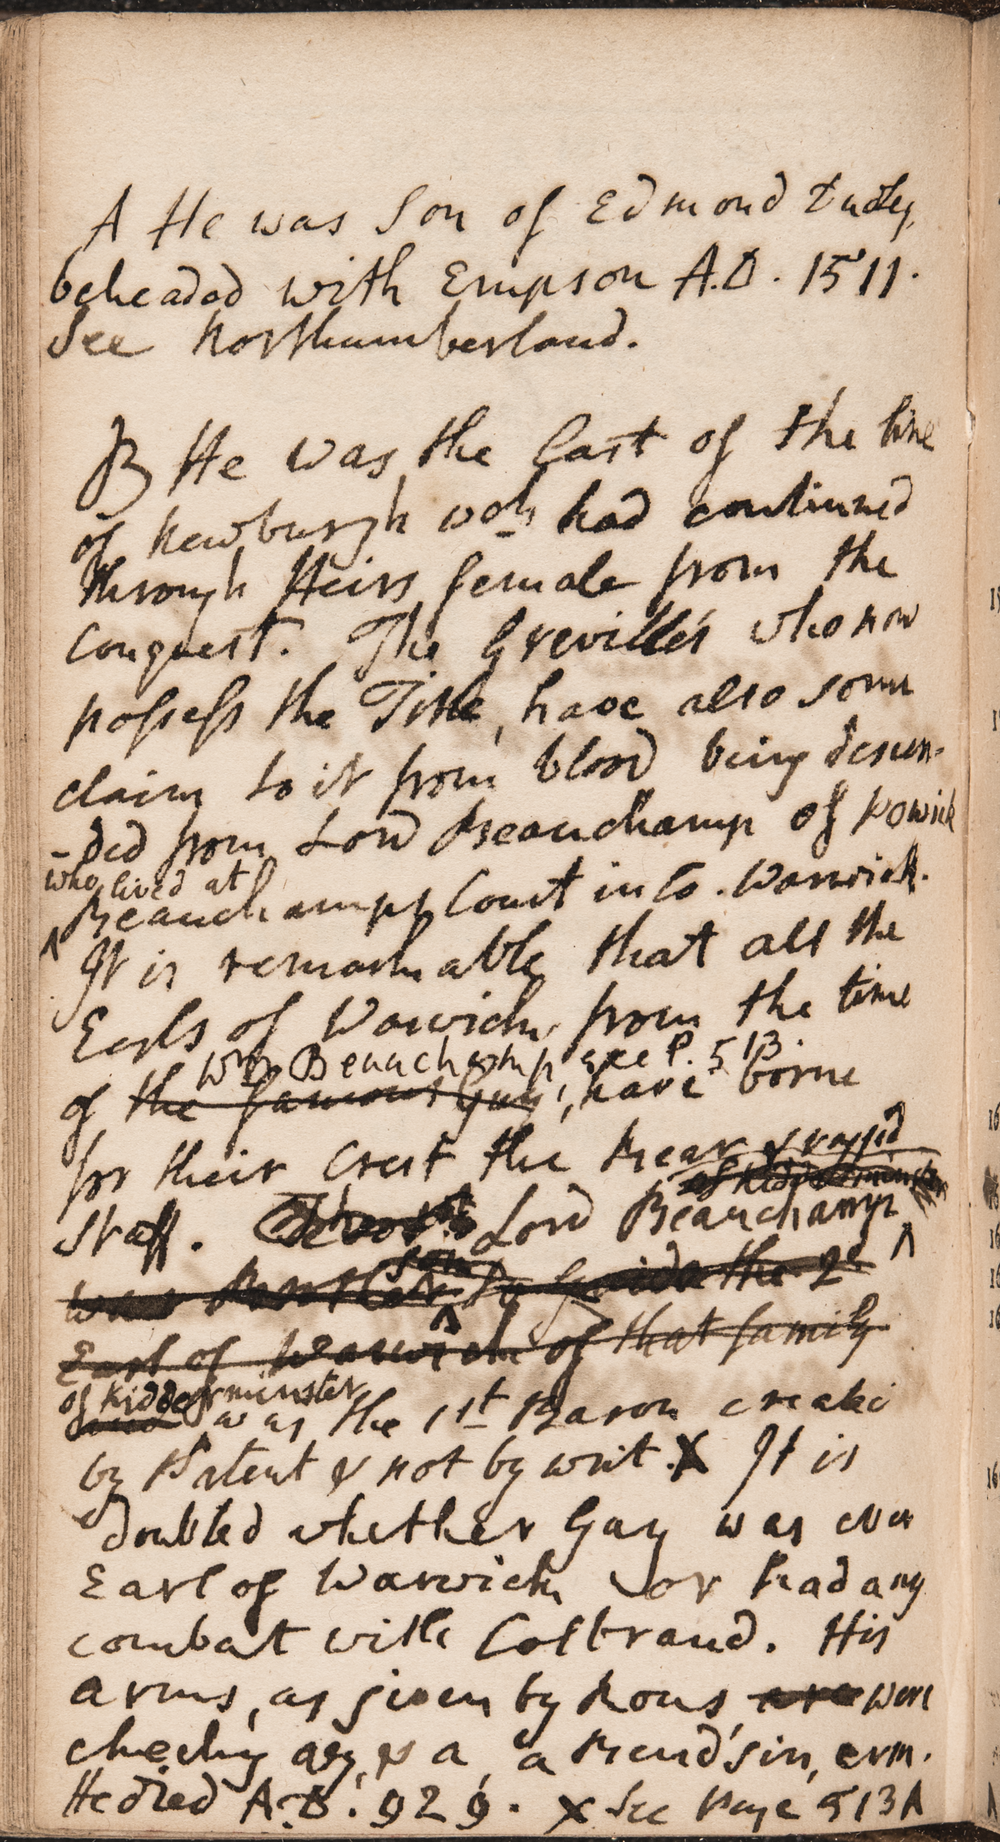 A He was Son of Edmond Dudley,
beheaded with Empson A.D. 1511.
See Northumberland.
B He was the last of the line
of Newburgh wch had continued
through Heirs female from the
Conquest. The Greville's who now
possess the Title, have also some
claim to it from blood being descen-
-ded from Lord Beauchamp of Powick
who lived at
Beauchamps Court in Co. Warwick.
It is remarkable that all the
Earls of Warwick, from the time
Wm Beauchamp see P. 513.
of the famous Guy, have borne
for their Crest the Bear & ragged
of Kidderminster
Staff. Lord Beauchamp
son
was Brother to Guido the 2d
Earl of Warwick of that family
of Kidderminster
was the 1st Baron created
by Patent & not by writ. X It is
doubted whether Guy was ever
Earl of Warwick or had any
combat with Colbrand. His
arms, as given by Rous are were
checky az, & a Bend sin, erm.
He died A.D. 929. X See Page 513A